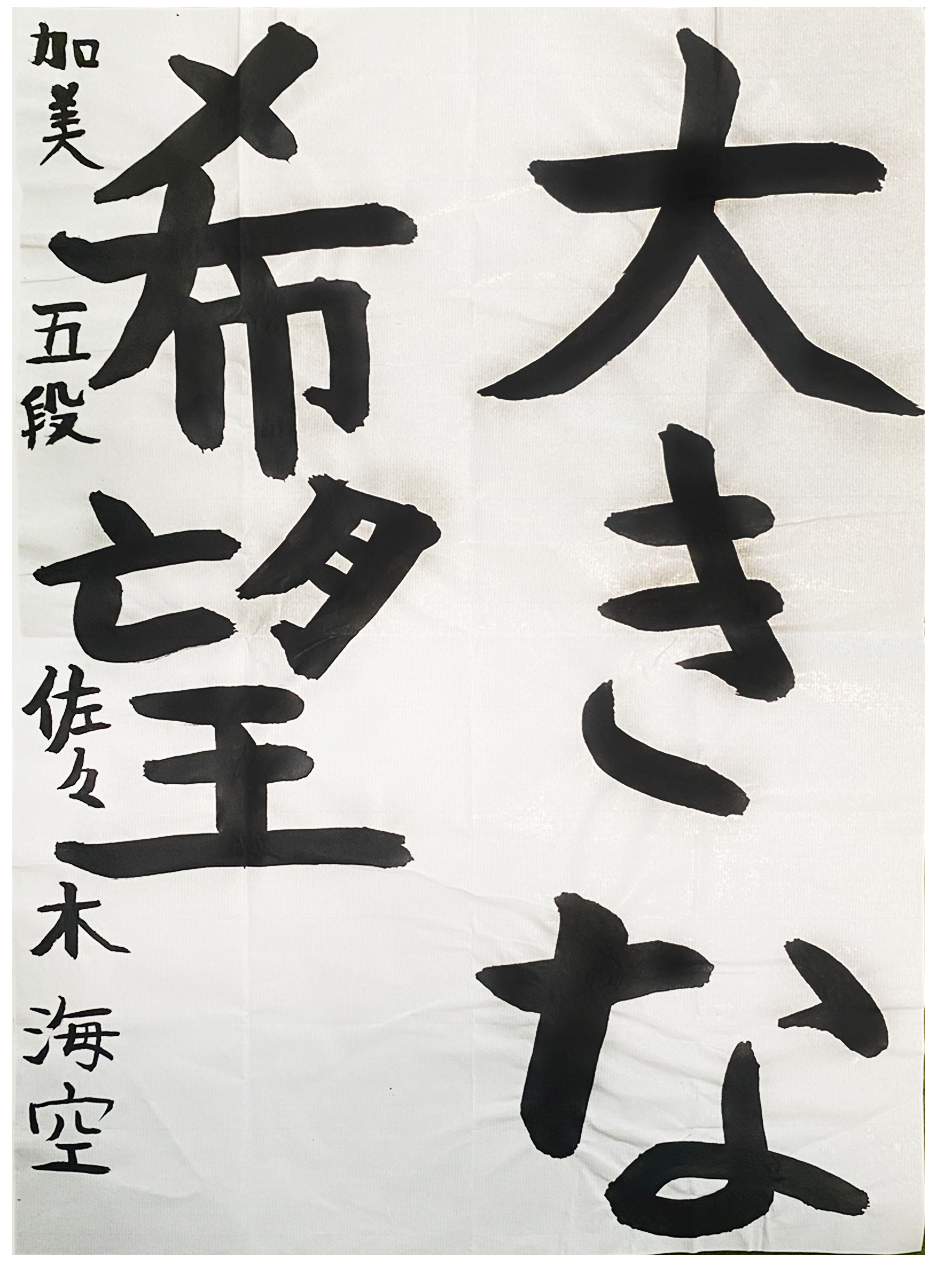 大きな
希望
加美 五段 佐々木 海空